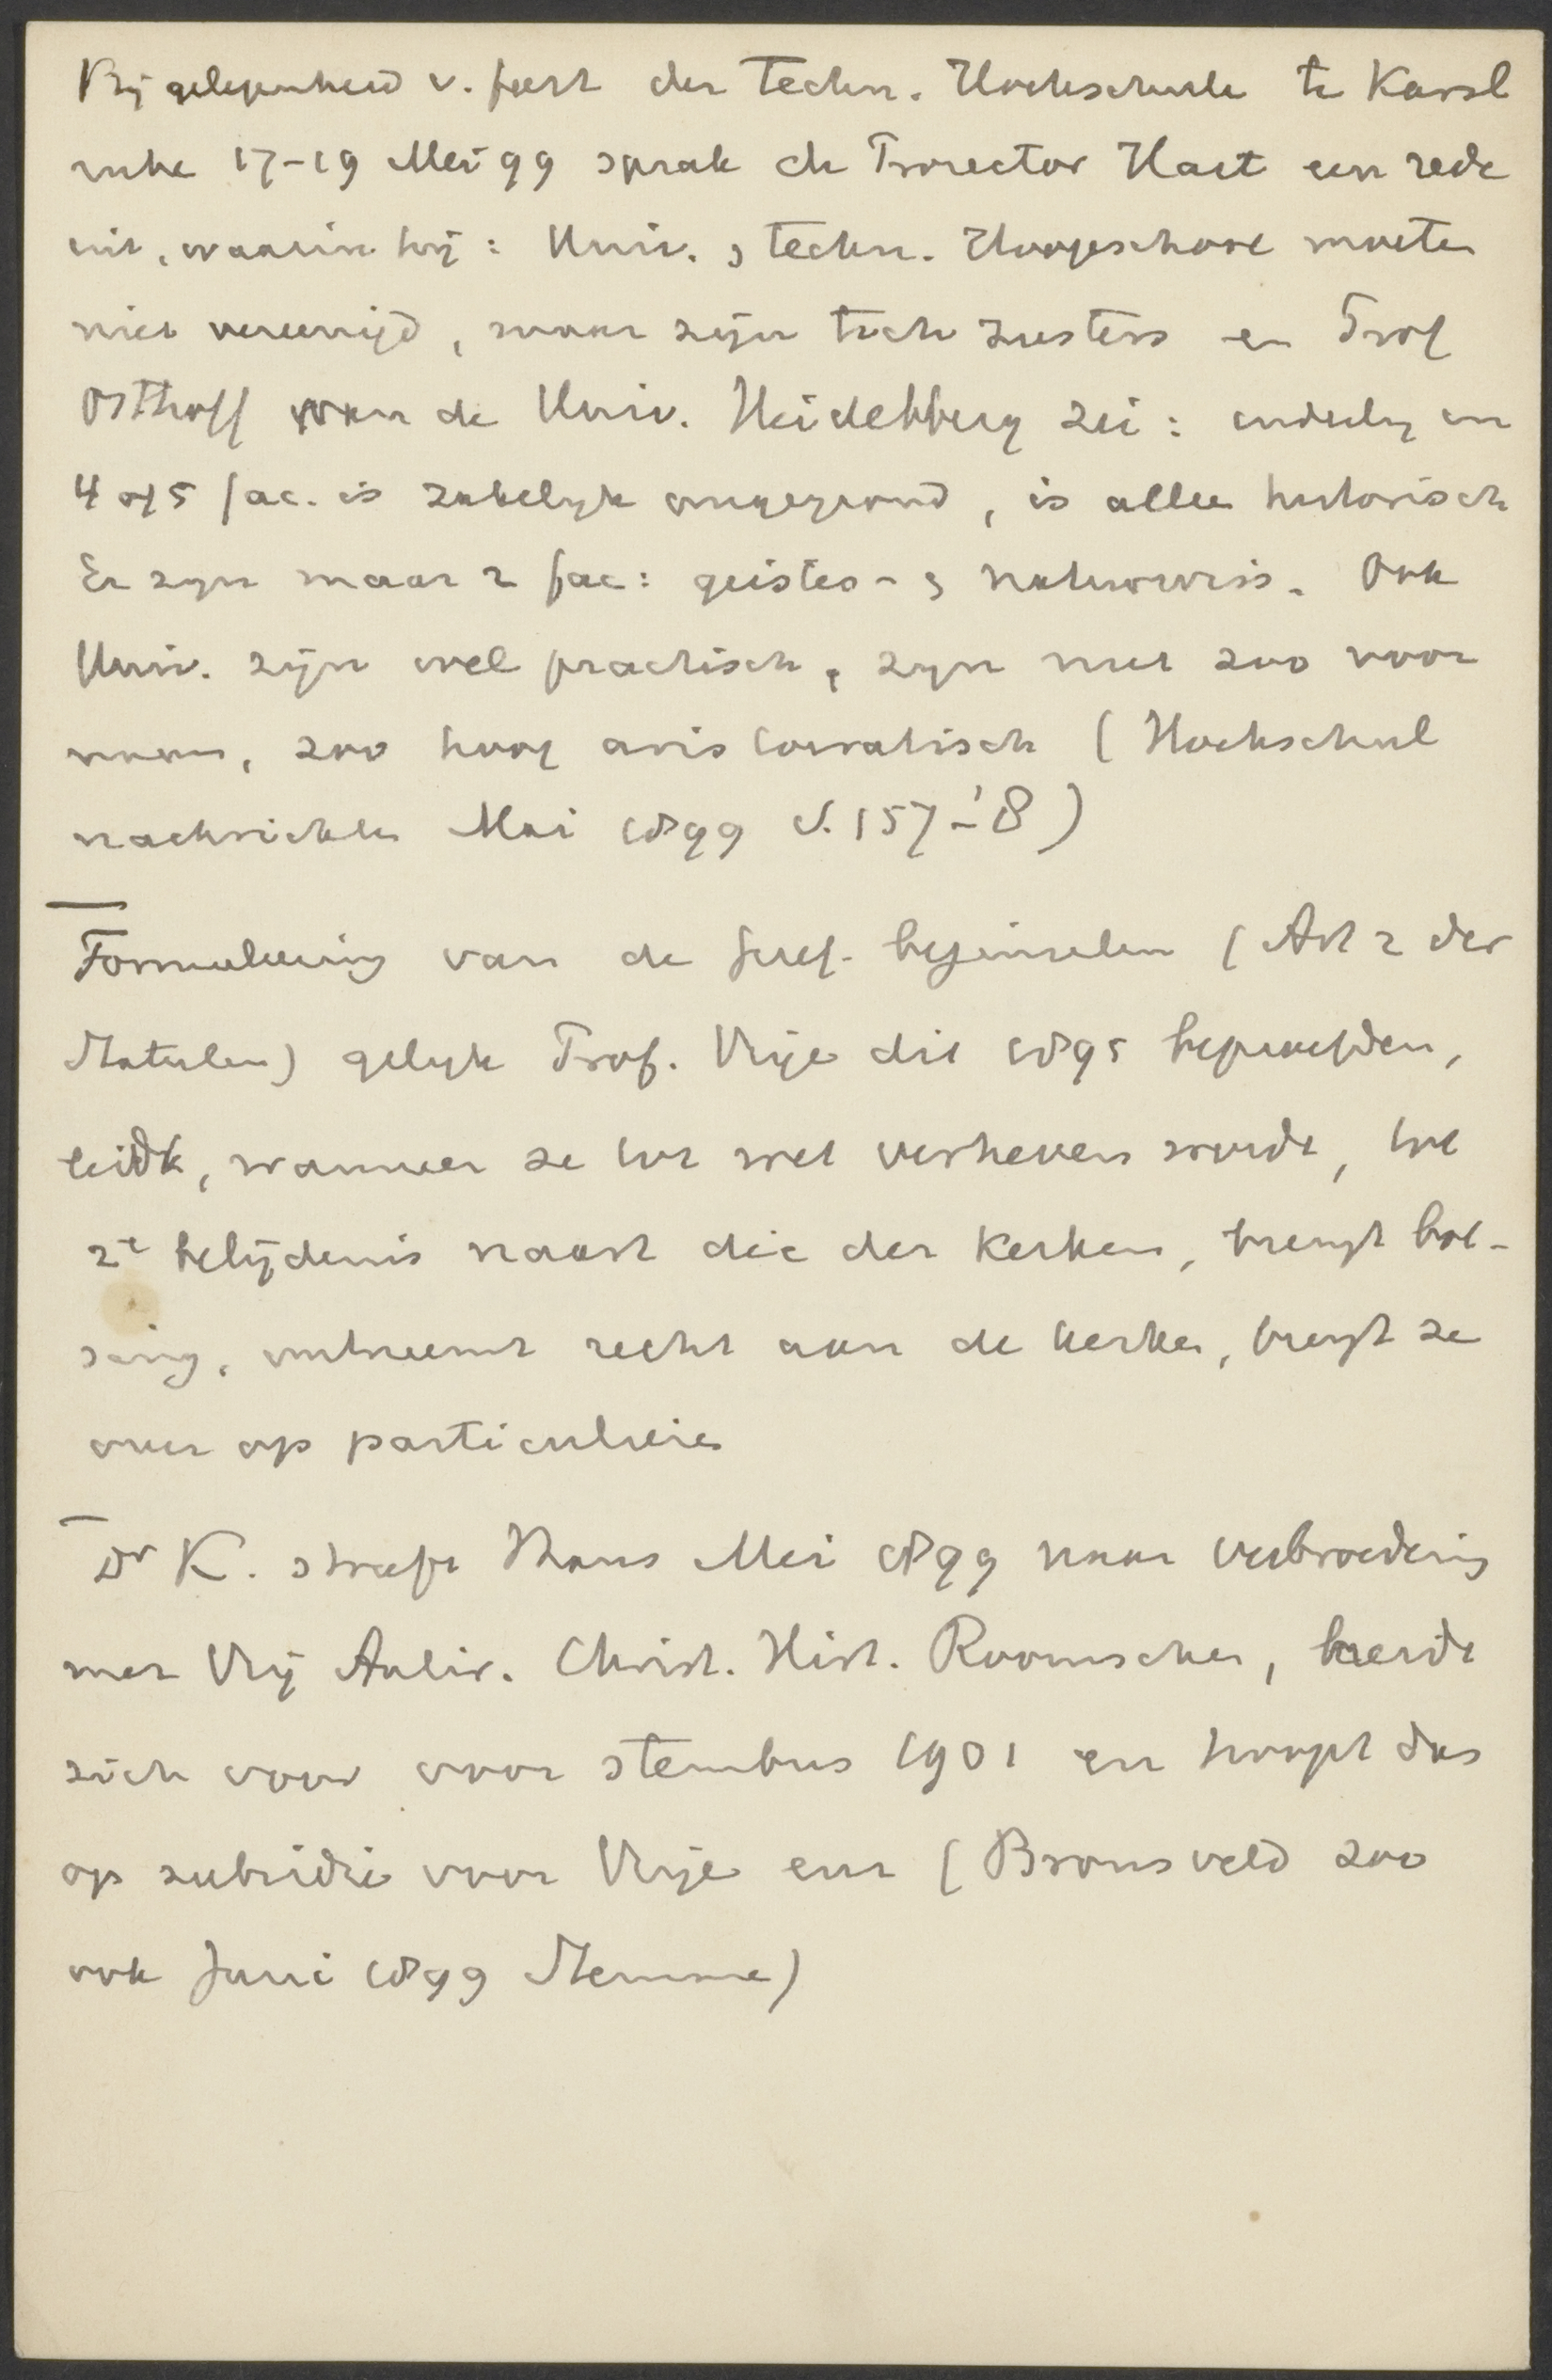 Bij gelegenheid v. feest der Techn. Hochschule te Karls
ruhe 17-19 Mei 99 sprak de Prorector Hart een rede
uit, waarin hij: Univ. & techn. Hoogeschool moeten
niet vereenigd, maar zijn toch zusters en Prof
Osthoff van de Univ. Heidelberg zei: indeeling in
4 of 5 fac. is zakelijk ongegrond, is alleen historisch
Er zijn maar 2 fac: geistes- & naturwiss. Ook
Univ. zijn wel practisch, zijn niet zoo voor
naam, zoo hoog aristocratisch (Hochschul
nachrichten Mai 1899 S. 157-'8)
Formuleering van de Geref. beginselen (Art 2 der
Statuten) gelijk Prof. Vrije dit 1895 beproefden,
leidt, wanneer ze tot wet verheven wordt, tot
2e belijdenis naast die der kerken, brengt bot-
sing, ontneemt recht aan de kerken, brengt ze
over op particulieren
Dr K. streeft thans Mei 1899 naar verbroedering
met Vrij Antir. Christ. Hist. Roomschen, bereidt
zich voor voor stembus 1901 en hoopt dus
op subsidie voor Vrije enz (Bronsveld zoo
ook Juni 1899 Stemmen)